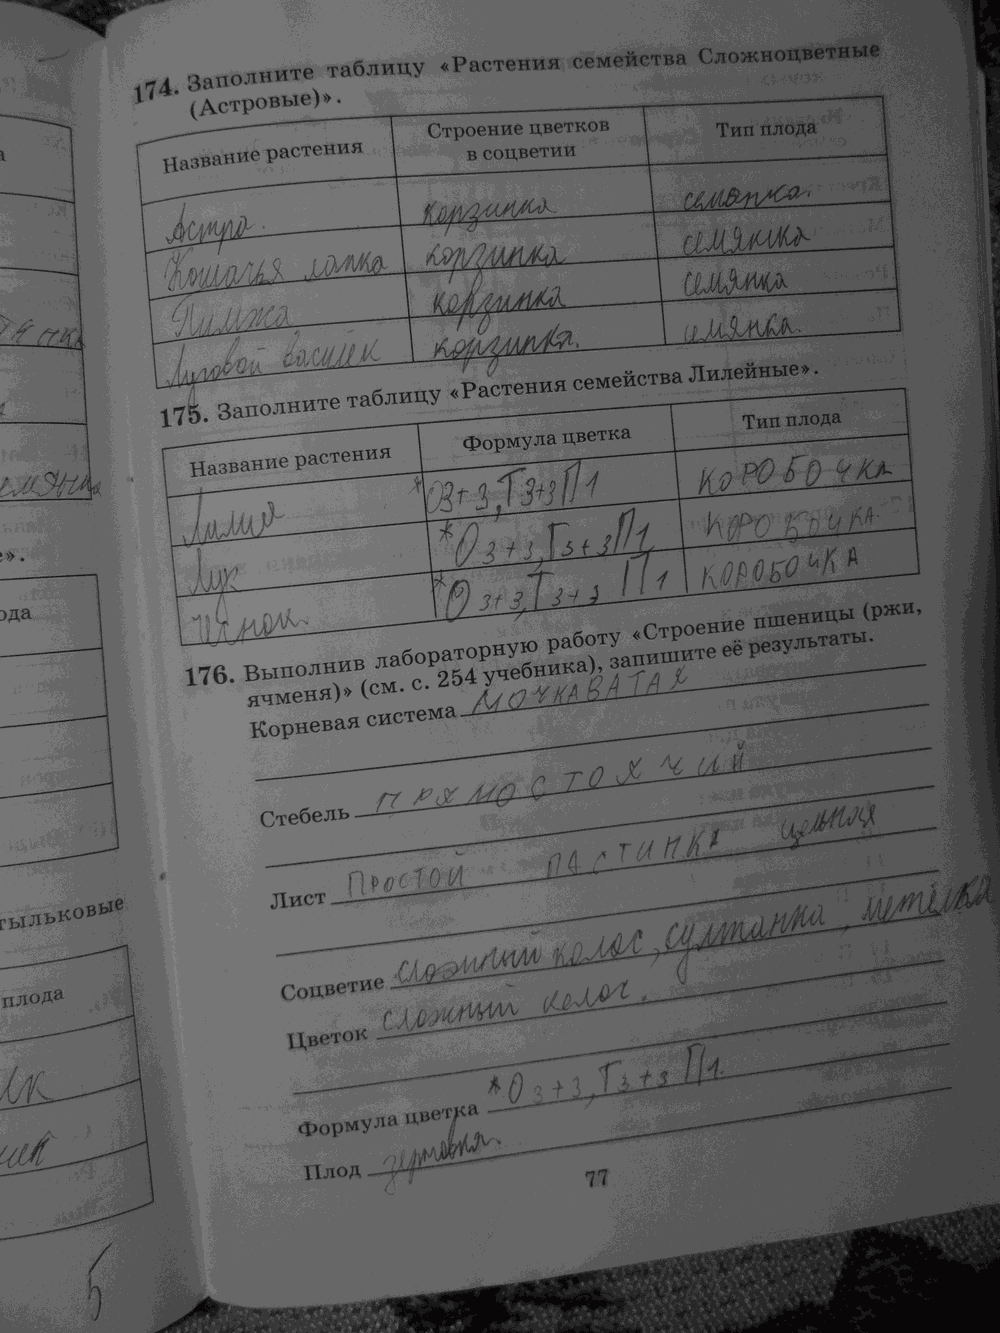 174. Заполните таблицу «Растения семейства Сложноцветные
(Астровые)».
Название растения Строение цветков в соцветии Тип плода
Астра. корзинка семянка.
Кошачья лапка корзинка семянка
Пижма корзинка семянка
Луговой василек корзинка. семянка.
175. Заполните таблицу «Растения семейства Лилейные».
Название растения Формула цветка Тип плода
Лилия *О3+3,Т3+3П1 КОРОБОЧКА
Лук *О3+3,Т3+3П1 КОРОБОЧКА
Чеснок. *О3+3,Т3+3 П1 КОРОБОЧКА
176. Выполнив лабораторную работу «Строение пшеницы (ржи,
ячменя)» (см. с. 254 учебника), запишите её результаты.
Корневая система МОЧКАВАТАЯ
Стебель ПРЯМОСТОЯЧИЙ
Лист ПРОСТОЙ ПАСТИНКА цельная
Соцветие сложный колос, султанка, метёлка
Цветок сложный колос.
Формула цветка *О3+3,Т3+3 П1.
Плод зерновка.
77
а
».
ода
тыльковые
плода
5